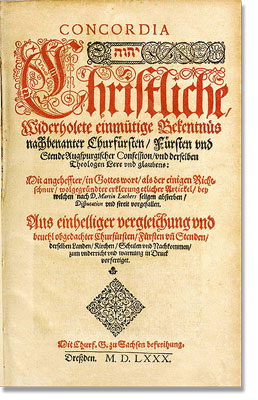 CONCORDIA
יהוה
Christliche,
Widerholete einmütige Bekentnüs
nachbenanter Churfürsten / Fürsten vnd
Stende Augspurgischer Confession / vnd derselben
Theologen Lere vnd glaubens:
Mit angeheffter / in Gottes wort / als der einigen Richt-
schnur / wolgegründter erklerung etlicher Artickel / bey
welchen nach D. Martin Luthers seligen absterben /
Disputation vnd streit vorgefallen.
Aus einhelliger vergleichung vnd
beuehl obgedachter Churfürsten / Fürsten vñ Stenden /
derselben Landen / Kirchen / Schulen vnd Nachkommen /
zum vnderricht vnd warnung in Druck
vorfertiget.
Mit Churf. G. zu Sachsen befreihung.
Dreßden. M. D. LXXX.